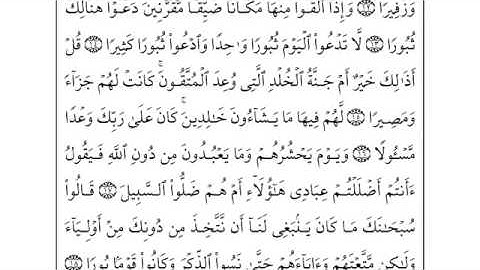 وَزَفِيرًا ١٢ وَإِذَآ أُلۡقُواْ مِنۡهَا مَكَانٗا ضَيِّقٗا مُّقَرَّنِينَ دَعَوۡاْ هُنَالِكَ
ثُبُورٗا ١٣ لَّا تَدۡعُواْ ٱلۡيَوۡمَ ثُبُورٗا وَٰحِدٗا وَٱدۡعُواْ ثُبُورٗا كَثِيرٗا ١٤ قُلۡ
أَذَٰلِكَ خَيۡرٌ أَمۡ جَنَّةُ ٱلۡخُلۡدِ ٱلَّتِي وُعِدَ ٱلۡمُتَّقُونَۚ كَانَتۡ لَهُمۡ جَزَآءٗ
وَمَصِيرٗا ١٥ لَّهُمۡ فِيهَا مَا يَشَآءُونَ خَٰلِدِينَۚ كَانَ عَلَىٰ رَبِّكَ وَعۡدٗا
مَّسۡـُٔولٗا ١٦ وَيَوۡمَ يَحۡشُرُهُمۡ وَمَا يَعۡبُدُونَ مِن دُونِ ٱللَّهِ فَيَقُولُ
ءَأَنتُمۡ أَضۡلَلۡتُمۡ عِبَادِي هَٰٓؤُلَآءِ أَمۡ هُمۡ ضَلُّواْ ٱلسَّبِيلَ ١٧ قَالُواْ
سُبۡحَٰنَكَ مَا كَانَ يَنۢبَغِي لَنَآ أَن نَّتَّخِذَ مِن دُونِكَ مِنۡ أَوۡلِيَآءَ
وَلَٰكِن مَّتَّعۡتَهُمۡ وَءَابَآءَهُمۡ حَتَّىٰ نَسُواْ ٱلذِّكۡرَ وَكَانُواْ قَوۡمَۢا بُورٗا ١٨